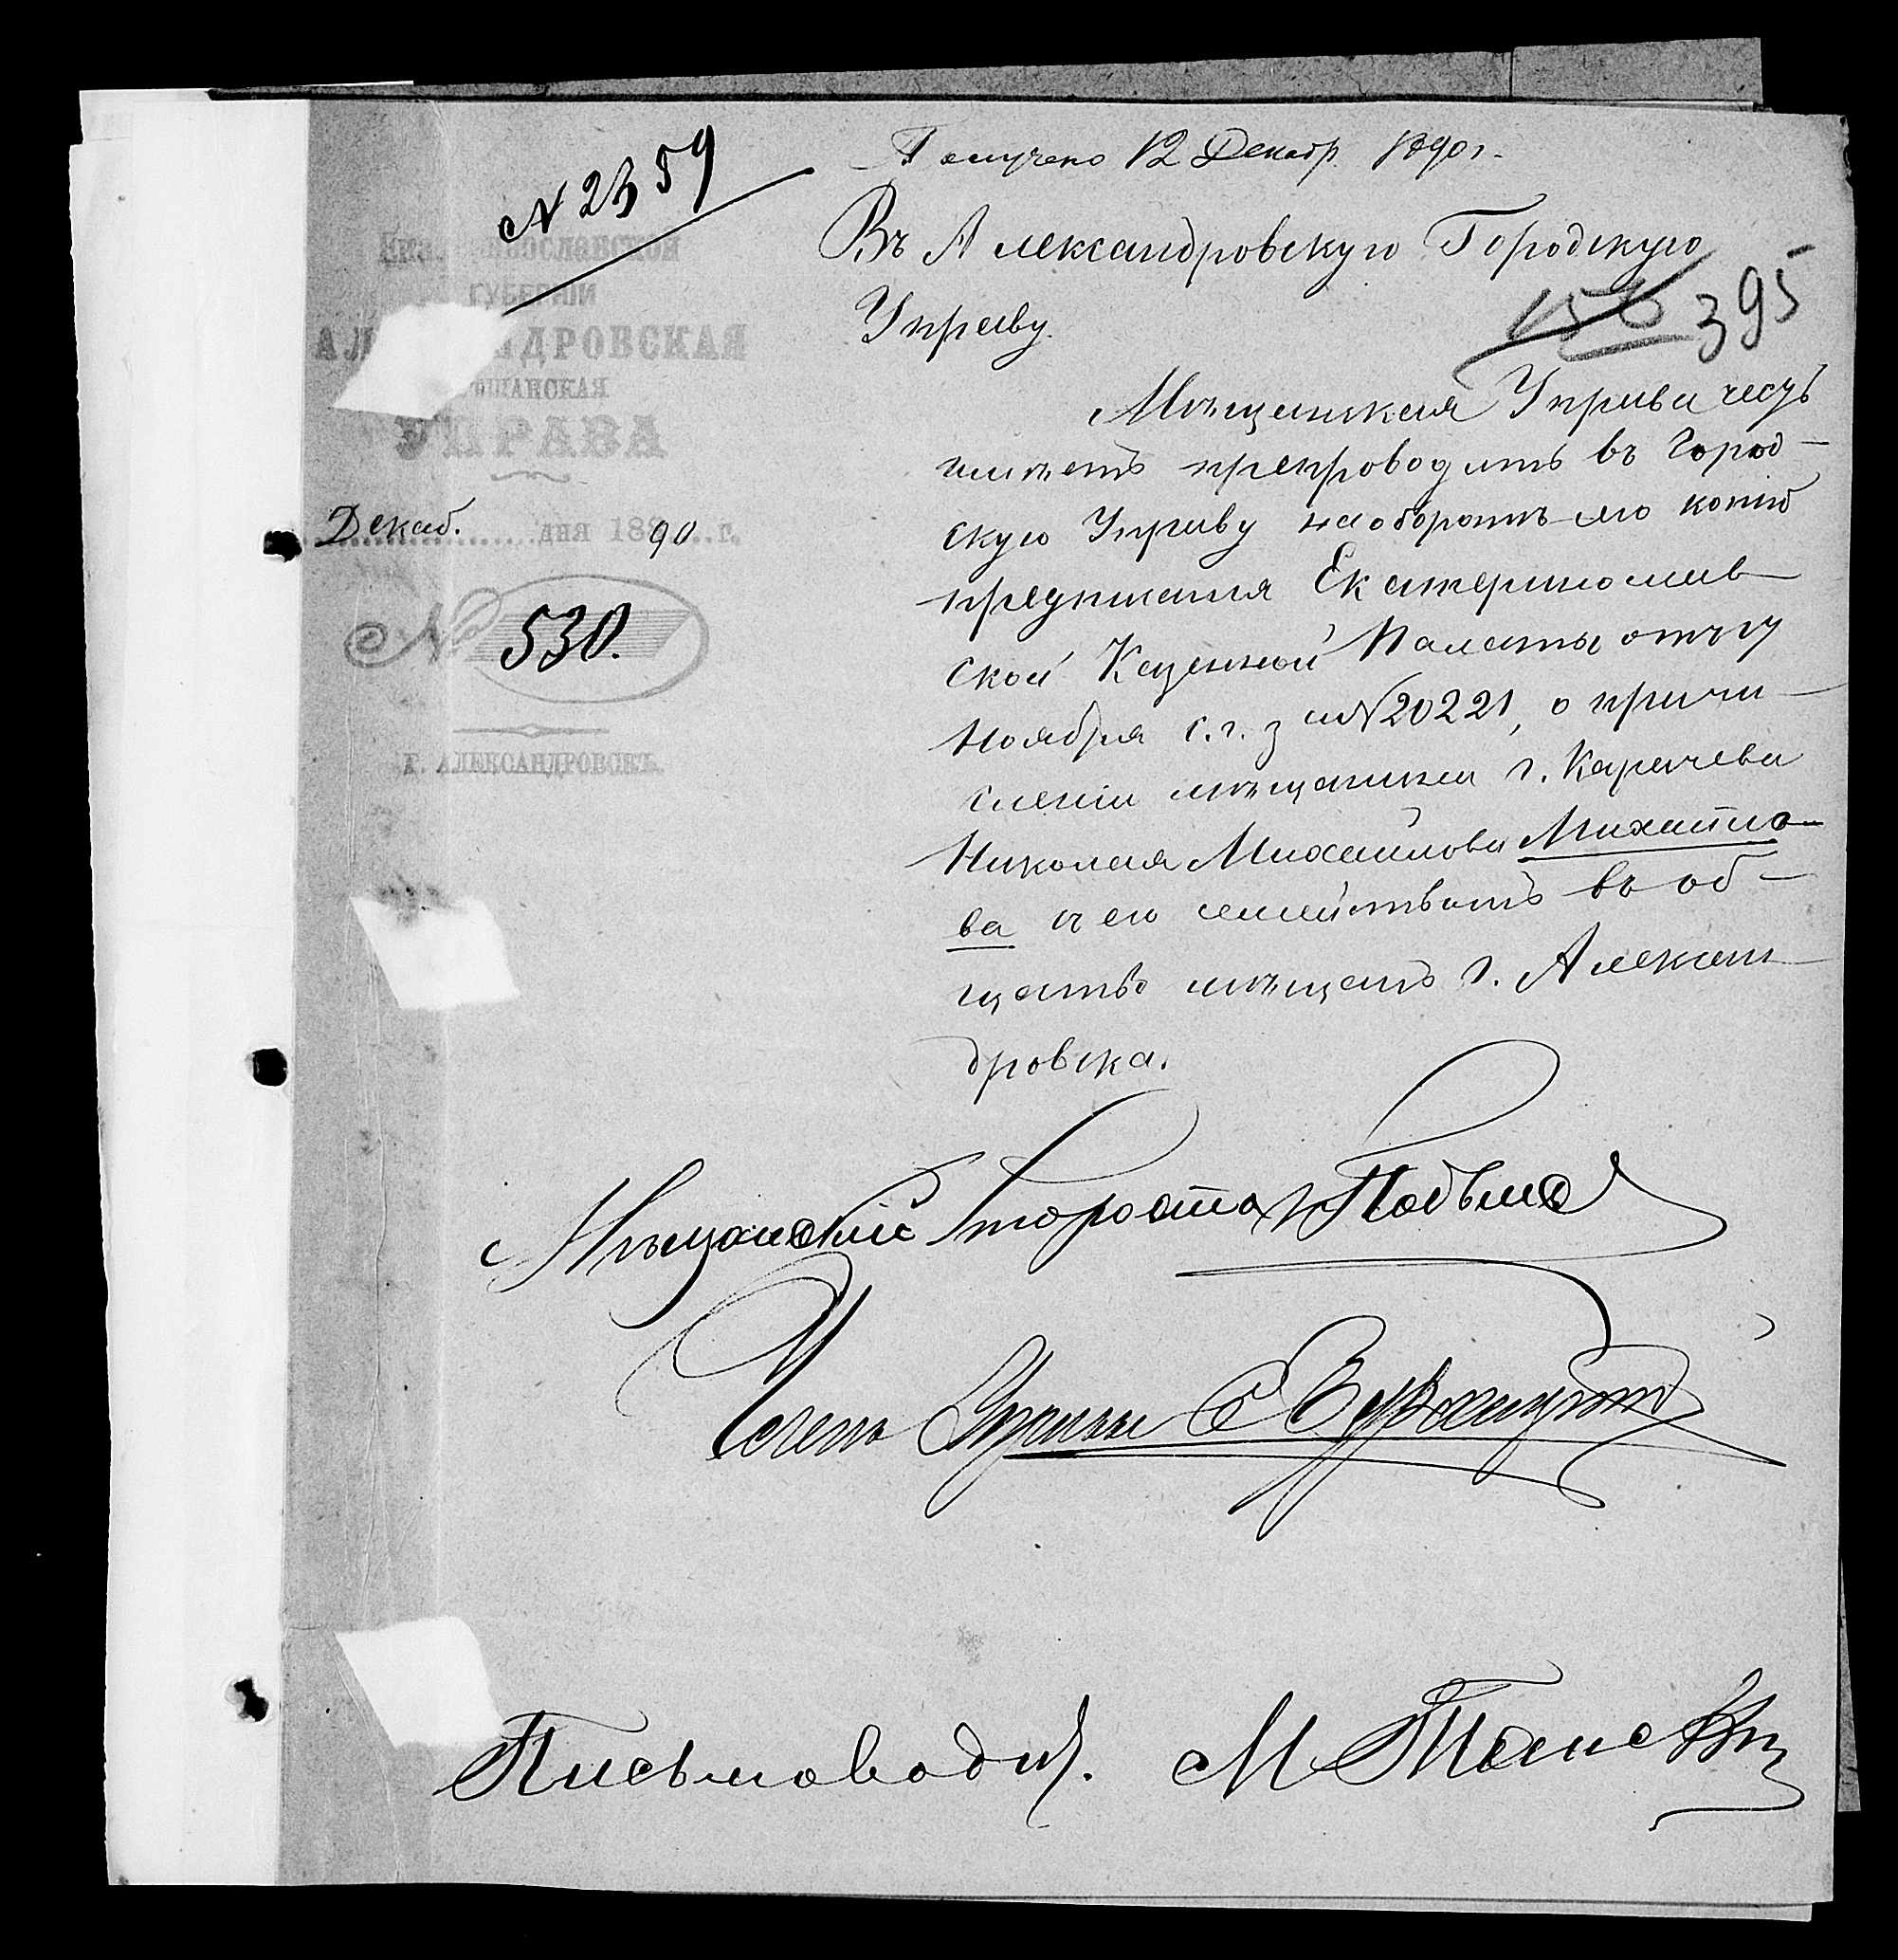 № 2359
Получено 12 Декабр. 1890 г.
Въ Александровскую Городскую
Управу.
395
Екатеринославской
ГУБЕРНІИ
АЛЕКСАНДРОВСКАЯ
МѢЩАНСКАЯ
УПРАВА
Декаб. дня 1890 г.
№ 530.
Г. АЛЕКСАНДРОВСКЪ.
Мѣщанская Управа честь
имѣетъ препроводить въ Город-
скую Управу на оборотѣ сего копію
предписанія Екатеринослав-
ской Казенной Палаты отъ
Ноября с.г. за № 20221, о причи-
сленіи мѣщанина г. Карачева
Николая Михайлова Михайло-
ва съ его семействомъ въ об-
щество мѣщанъ г. Алексан-
дровска.
Мѣщанскій Староста
Членъ Управы
Письмоводит. М